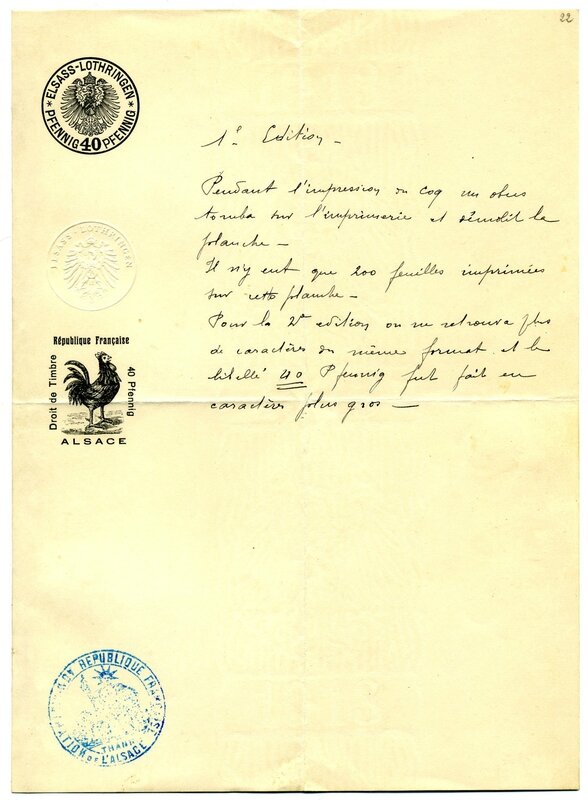 22
* ELSASS-LOTHRINGEN *
PFENNIG 40 PFENNIG
ELSASS-LOTHRINGEN
République Française
Droit de Timbre
40 Pfennig
ALSACE
1e Edition -
Pendant l'impression du coq un obus
tomba sur l'imprimerie et démolit la
planche -
Il n'y eut que 200 feuilles imprimées
sur cette planche -
Pour la 2e edition on ne retrouva plus
de caractères du même format et le
libellé 40 Pfennig fut fait en
caractères plus gros -
RÉPUBLIQUE
THANN
DE L'ALSACE